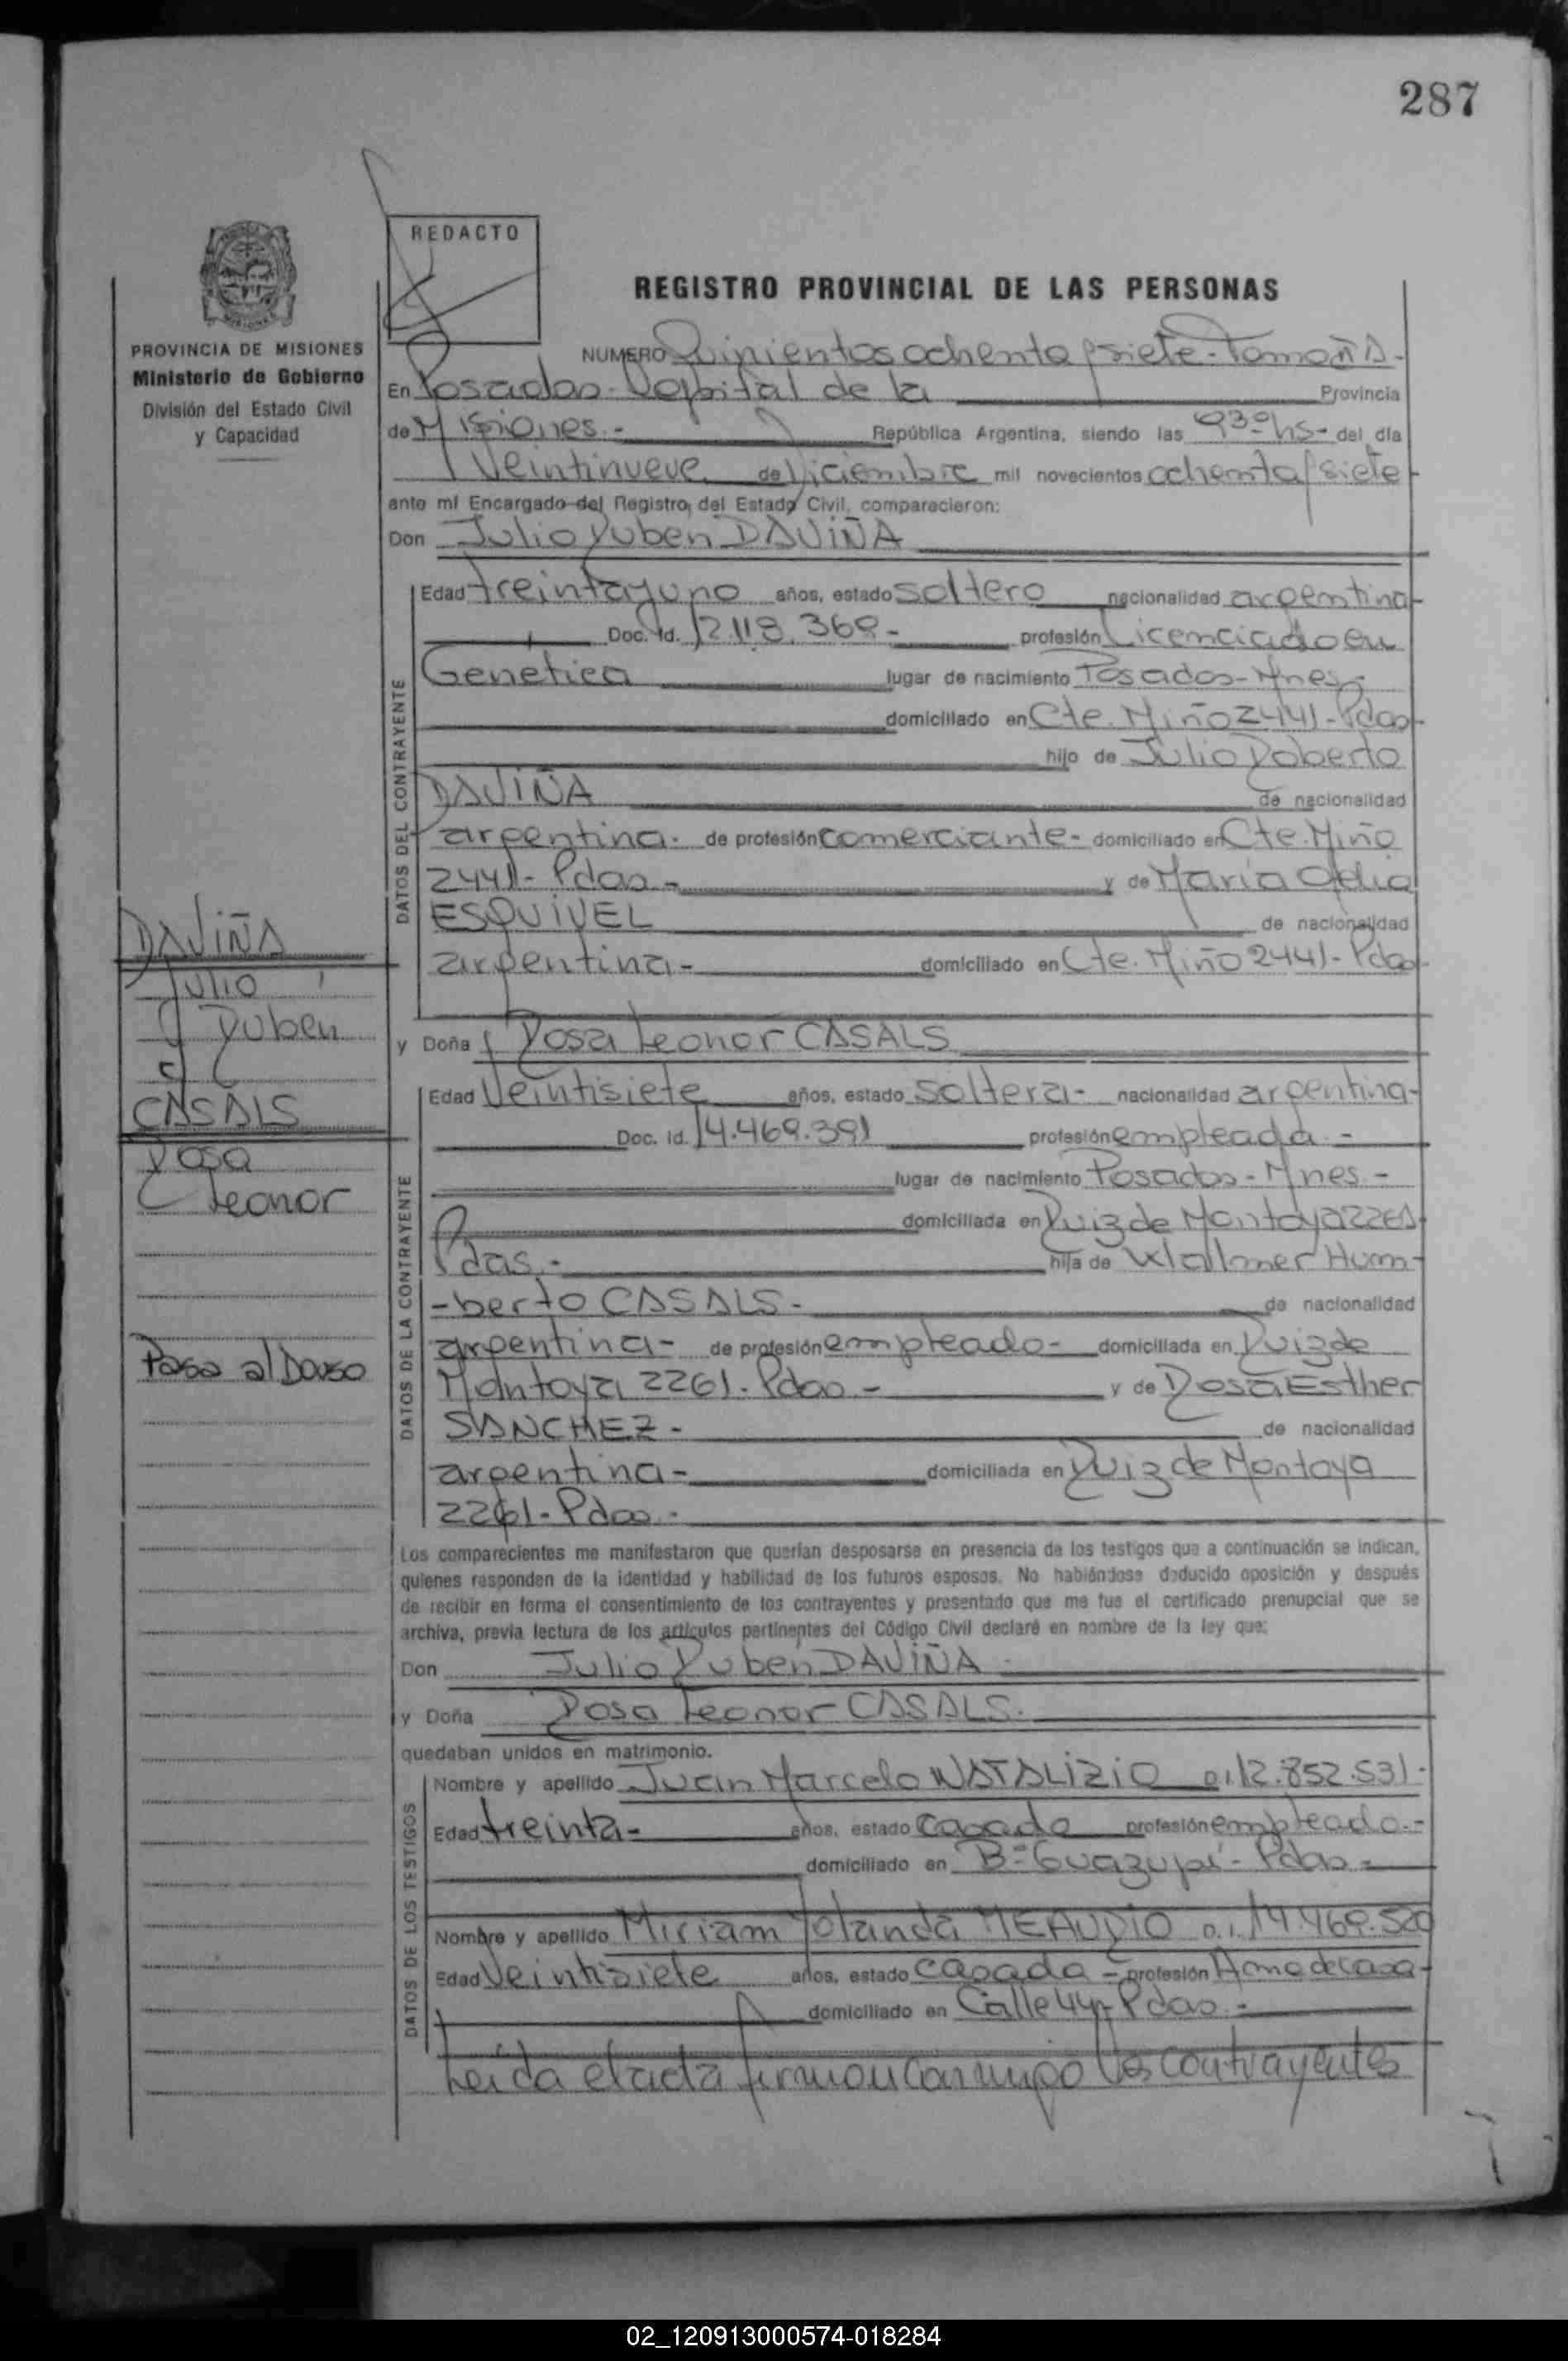 287
REDACTO
REGISTRO PROVINCIAL DE LAS PERSONAS
PROVINCIA DE MISIONES
Ministerio de Gobierno
División del Estado Civil
y Capacidad
NUMERO Quinientos ochenta y siete - Tomo
En Posadas - Capital de la Provincia
de Misiones.- República Argentina, siendo las 930 hs- del día
Veintinueve de Diciembre mil novecientos ochenta y siete
ante mí Encargado del Registro del Estado Civil, comparecieron:
Don Julio Ruben DAVIÑA
DATOS DEL CONTRAYENTE
Edad treinta y uno años, estado soltero nacionalidad argentina-
Doc. Id. 12.118.369- profesión Licenciado en
Genetica lugar de nacimiento Posadas-Mnes.-
domiciliado en Cte. Miño 2441-Pdas-
hijo de Julio Roberto
DAVIÑA de nacionalidad
argentina- de profesión comerciante- domiciliado en Cte. Miño
2441- Pdas- y de Maria
ESQUIVEL de nacionalidad
argentina- domiciliado en Cte. Miño 2441- Pdas-
y Doña Rosa Leonor CASALS
DATOS DE LA CONTRAYENTE
Edad Veintisiete años, estado soltera- nacionalidad argentina-
Doc. Id. 14.469.391 profesión empleada.-
lugar de nacimiento Posadas-Mnes-
domiciliada en Ruiz de Montoya 2261
Pdas.- hija de Walmer Hum-
-berto CASALS- de nacionalidad
argentina- de profesión empleado- domiciliada en Ruiz de
Montoya 2261- Pdas- y de Rosa Esther
SANCHEZ- de nacionalidad
argentina- domiciliada en Ruiz de Montoya
2261- Pdas.-
Los comparecientes me manifestaron que querían desposarse en presencia de los testigos que a continuación se indican,
quienes responden de la identidad y habilidad de los futuros esposos. No habiéndose deducido oposición y después
de recibir en forma el consentimiento de los contrayentes y presentado que me fue el certificado prenupcial que se
archiva, previa lectura de los artículos pertinentes del Código Civil declaré en nombre de la ley que:
Don Julio Ruben DAVIÑA
y Doña Rosa Leonor CASALS.
quedaban unidos en matrimonio.
DATOS DE LOS TESTIGOS
Nombre y apellido Juan Marcelo NATALIZIO D.I 12.852.531-
Edad treinta- años, estado casado profesión empleado.-
domiciliado en Bº Guazupi- Pdas-
Nombre y apellido Miriam Yolanda D.I. 14.469.520
Edad Veintisiete años, estado casada- profesión Ama de casa-
domiciliado en Calle 44- Pdas.-
Leída el acta firman conmigo los contrayentes
DAVIÑA
Julio
Ruben
y
CASALS
Rosa
Leonor
Pasa al Dorso
02_120913000574-018284